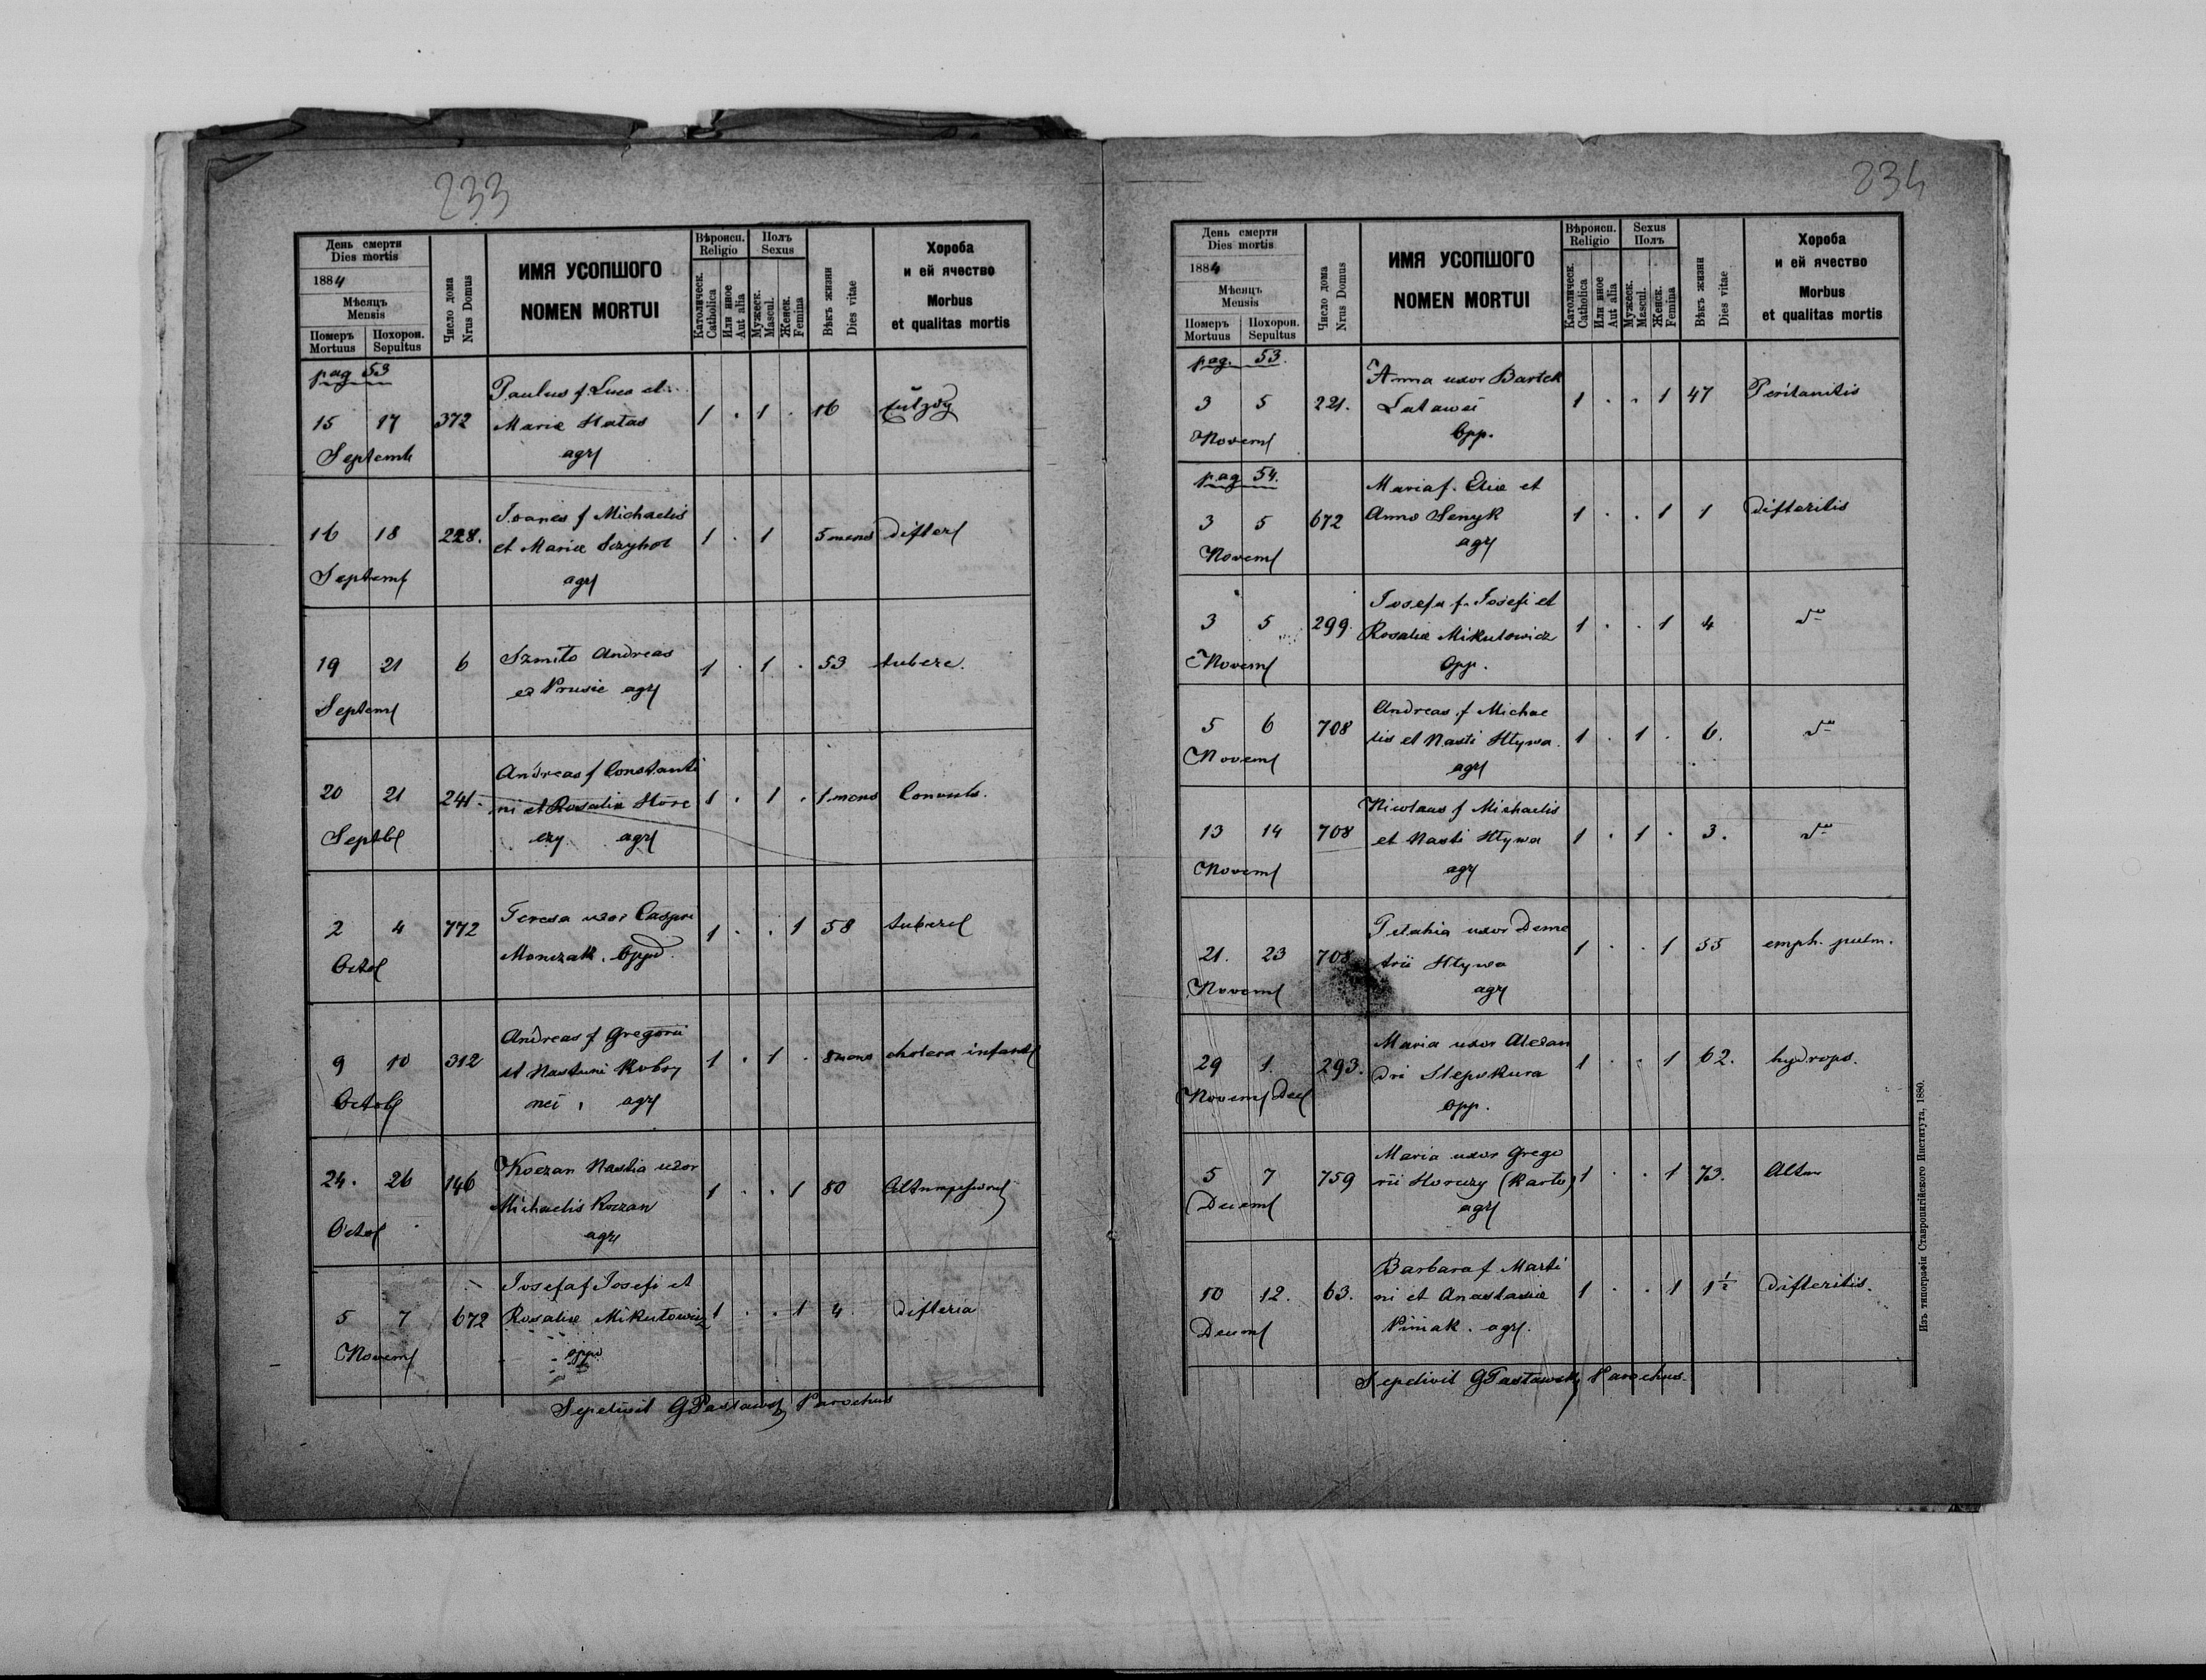 233
День смерти
Dies mortis
1884
Мѣсяцъ
Mensis
Померъ
Mortuus
Похорон.
Sepultus
Число дома
Nrus Domus
ИМЯ УСОПШОГО
NOMEN MORTUI
Вѣроисп.
Religio
Католическ.
Catholica
Или иное
Aut alia
Полъ
Sexus
Мужеск.
Mascul.
Женск.
Femina
Вѣкъ жизни
Dies vitae
Хороба
и ей ячество
Morbus
et qualitas mortis
pag 53
Paulus f. Luca et
15 17 372 Maria Hatas 1 . 1 . 16
Septemb agr
Joanes f Michaelis
16 18 228. et Maria 1 . 1 5 mens difter
Septem agr
Szmito Andreas
19 21 6 ex Prusie agr 1 . 1 . 53 tuberc.
Septem
Andreas f Constanti
20 21 241. ni et Rosalia Hore 1 . 1 . 1 mens Convuls.
Septbl czy agr
Teresa uxor Caspri
2 4 772 Monczak. Oppid 1 . . 1 58 tubercl
Octob
Andreas f Gregorii
9 10 312 et Nastuni Kobry 1 . 1 . 8 mens cholera infant
Octob nei agr
Koczan Nastia uxor
24. 26 146 Michaelis Koczan 1 . . 1 80
Octob agr
Josefa f Josefi et
5 7 672 Rosaliæ Mikutowicz 1 . . 1 4 difteria
Novem opp
Sepelivit G Pastawsky Parochus
234
День смерти
Dies mortis
1884
Мѣсяцъ
Mensis
Померъ
Mortuus
Похорон.
Sepultus
Число дома
Nrus Domus
ИМЯ УСОПШОГО
NOMEN MORTUI
Вѣроисп.
Religio
Католическ.
Catholica
Или иное
Aut alia
Sexus
Полъ
Мужеск.
Mascul.
Женск.
Femina
Вѣкъ жизни
Dies vitae
Хороба
и ей ячество
Morbus
et qualitas mortis
pag. 53.
Anna uxor Bartek
3 5 221. Latawci 1 . . 1 47 Peritanitis
Novem Opp.
pag 54.
Maria f. Eliæ et
3 5 672 Anna Senyk 1 . . 1 1 difteritis
Novem agr
Josefa f. Josefi et
3 5 299. Rosaliæ Mikutowicz 1 . . 1 4
Novem Opp.
Andreas f Michae
5 6 708 lis et Nasti Hlywa. 1 . 1 . 6.
Novem agr
Nicolaus f Michaelis
13 14 708 et Nasti Hlywa 1 . 1 . 3.
Novem agr
Pelahia uxor Deme
21. 23 708 trii Hlywa 1 . . 1 55 emph. pulm.
Novem agr
Maria uxor Alexan
29 1. 293. dri Stepskura 1 . . 1 62. hydrops.
Novem Dec opp.
Maria uxor Grego
5 7 759 rii Horczy (Karto) 1 . . 1 73.
Decem agr
Barbara f Marti
10 12. 63. ni et Anastasiæ 1 . . 1 1½ Difteritis.
Decem Piniak. agr.
Sepelivit G Pastawsky Parochus.
Изъ типографіи Ставропигійского Института, 1880.